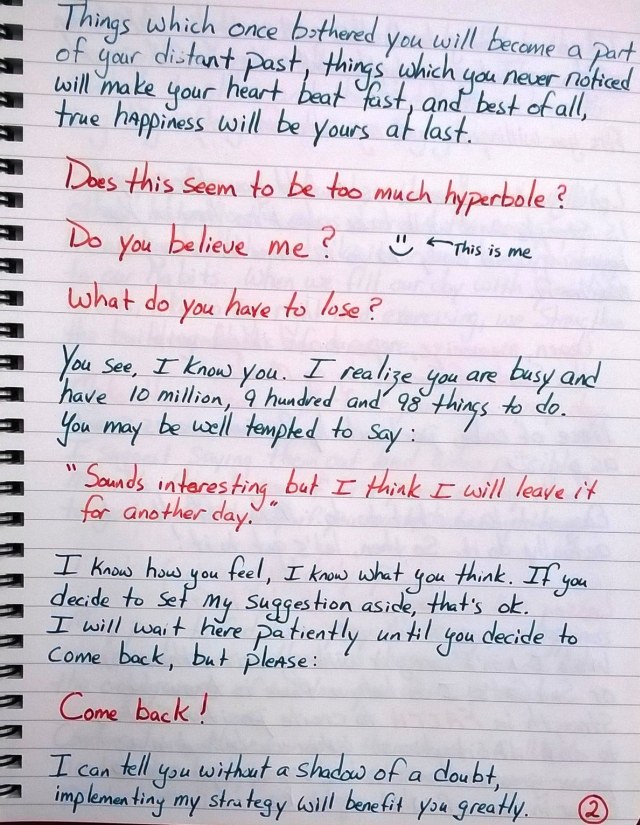 Things which once bothered you will become a part
of your distant past, things which you never noticed
will make your heart beat fast, and best of all,
true happiness will be yours at last.
Does this seem to be too much hyperbole?
Do you believe me? This is me
What do you have to lose?
You see, I know you. I realize you are busy and
have 10 million, 9 hundred and 98 things to do.
You may be well tempted to say:
"Sounds interesting but I think I will leave it
for another day."
I know how you feel, I know what you think. If you
decide to set my suggestion aside, that's ok.
I will wait here patiently until you decide to
come back, but please:
Come back!
I can tell you without a shadow of a doubt,
implementing my strategy will benefit you greatly.
2